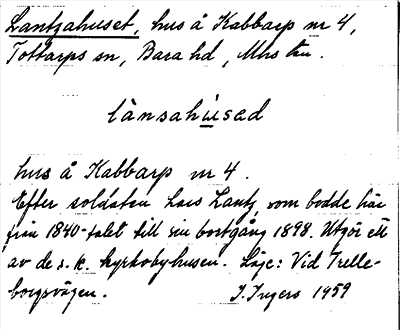 Lantzahuset, hus å Kabbarp nr 4,
Tottarps sn, Bara hd, Mhs län.
lànsahúsed
hus å Kabbarp nr 4.
Efter soldaten Lars Lantz som bodde här
från 1840-talet till sin bortgång 1898. Utgör ett
av de s.k. kyrkobyhusen. Läge: Vid Trelle-
borgsvägen. I. Ingers 1959